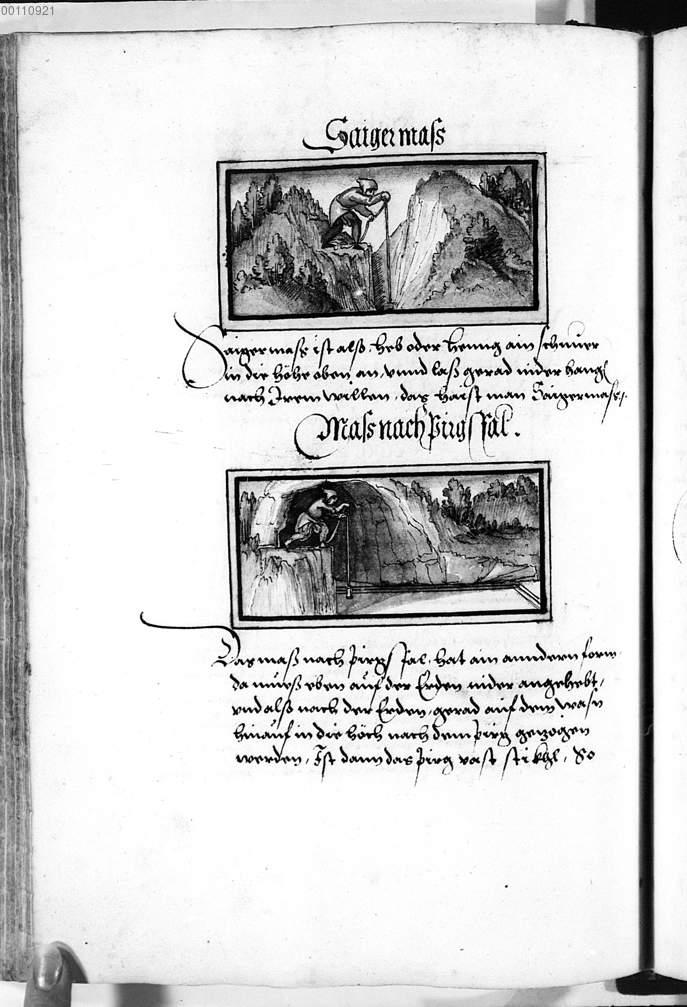 00110921
Saigermass
Saigermass ist also, heb oder henng ain schnuer
in die höhe oben an, vnnd laß gerad nider hang
nach Irem willen, das haist man Saigermass.
Mass nach pirgs fal.
Das maß nach pirgs fal, hat ain anndern form
da mueß eben auf der Erden nider angehebt,
vnd also nach der Erden, gerad auf dem wasn
hinauf in die höch nach dem pirg gezogen
werden, Ist dann das pirg vast stikhl, So